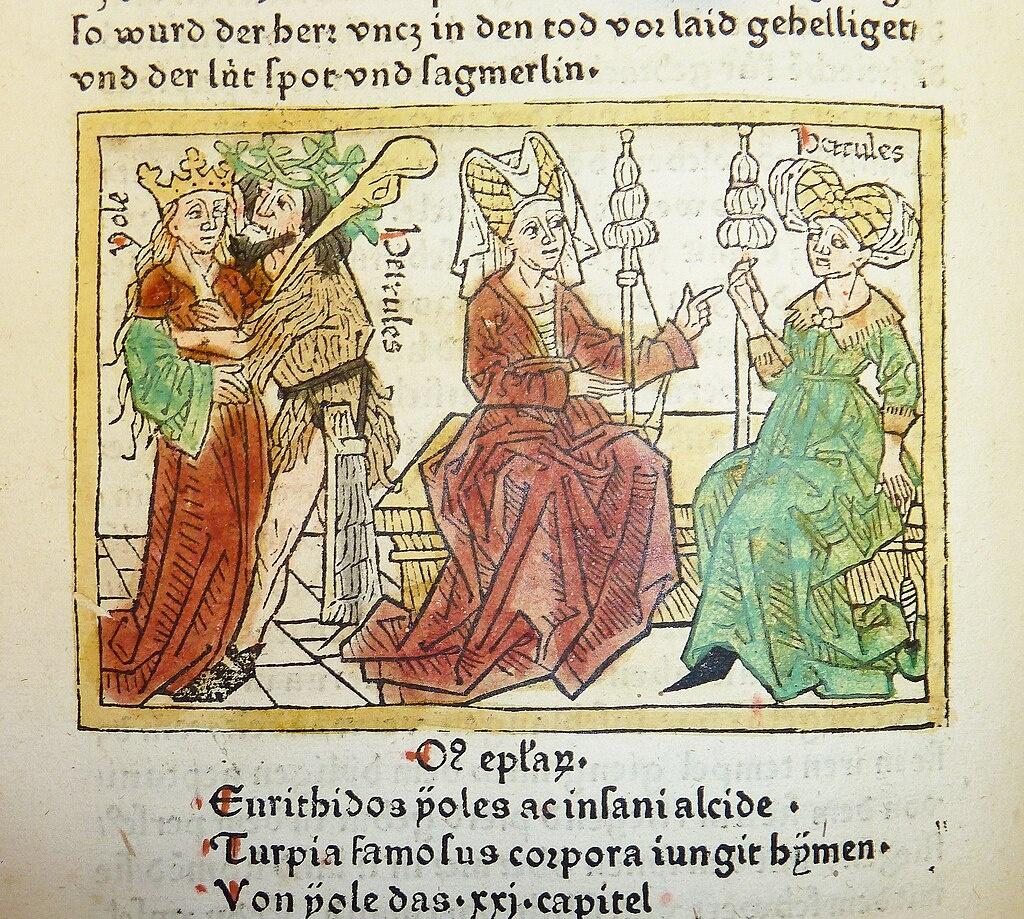 so wurd der herr vncz in den tod vor laid gehelliget
vnd der lüt spot vnd sagmerlin.
yole
hercules
hercules
Eurithidos ÿoles ac insani alcide .
Turpia famosus corpora iungit hÿmen.
Von ÿole das .xxj. capitel